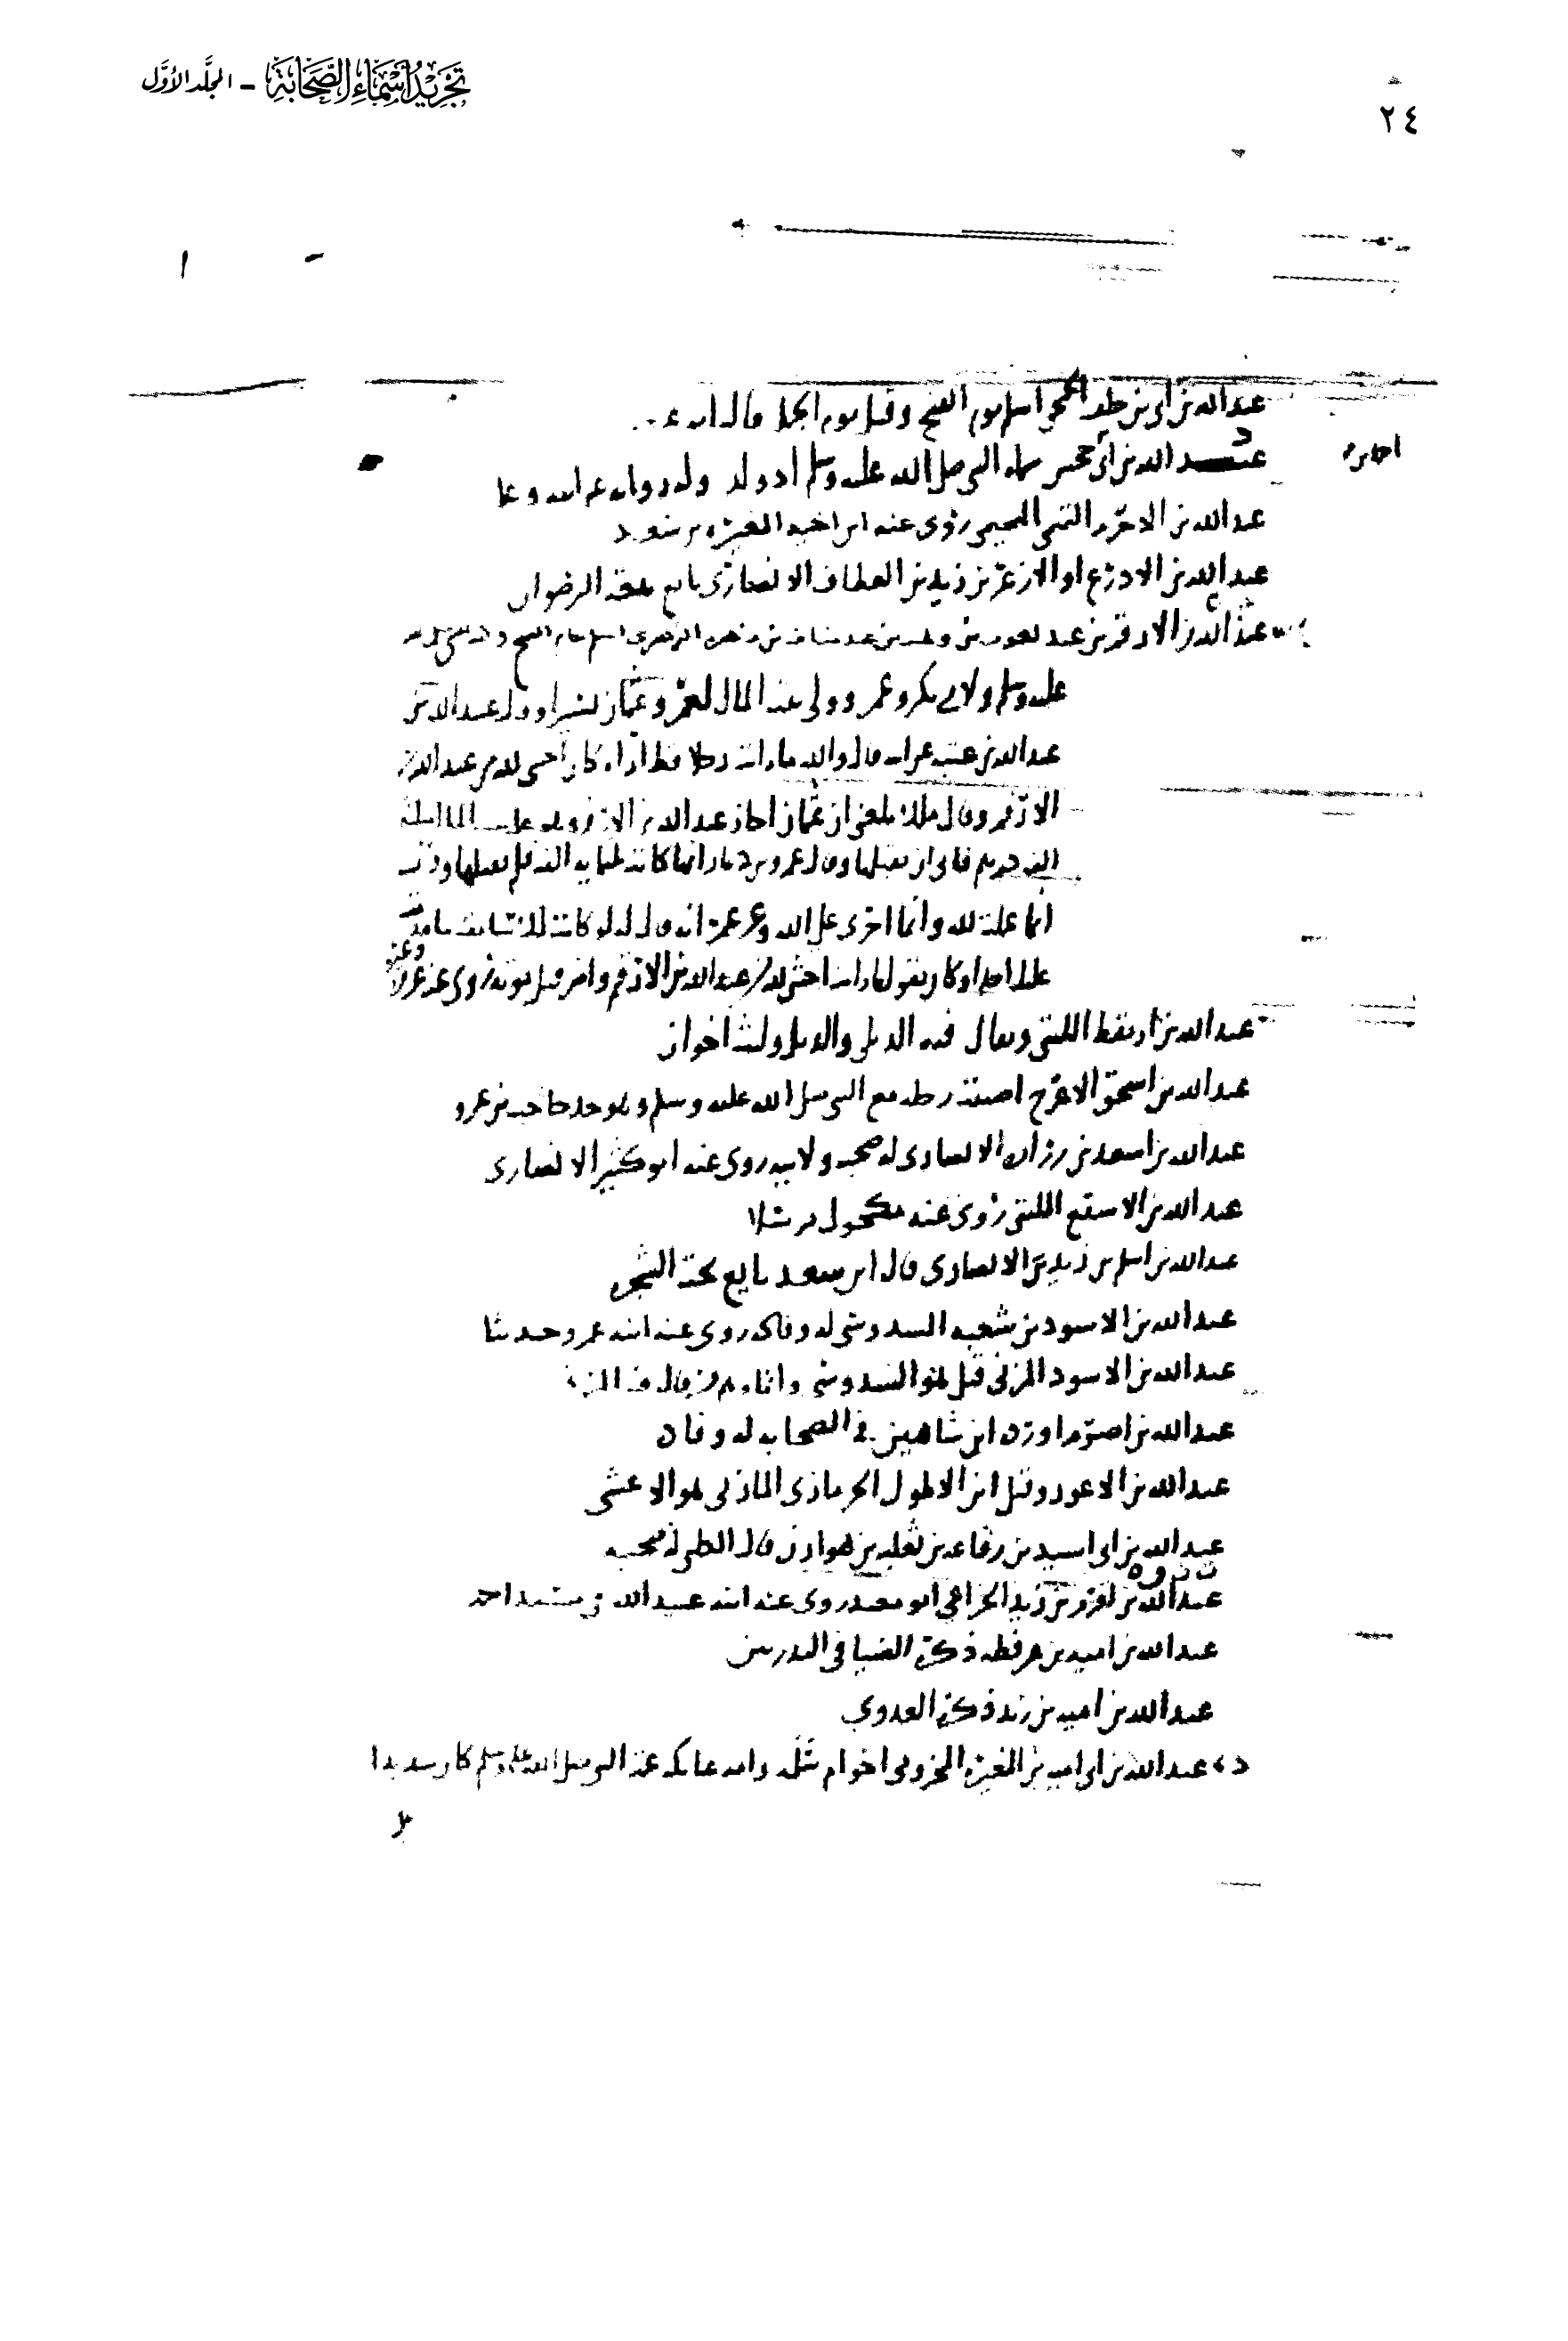 ٢٤
تجريد أسماء الصحابة - المجلد الأول
عبد الله بن ابي بن خلف الجمحي اسلم يوم الفتح وقتل يوم الجمل قاله ابن
عبد الله بن ابي احمد بن جحش سماه النبي صلى الله عليه وسلم اذ ولد وله رواية عن ابيه
عبد الله بن الاخرم التميمي روى عنه ابن اخيه المغيرة بن سعد
عبد الله بن الادرع او الازعر بن زيد بن العطاف الانصاري بايع بيعة الرضوان
عبد الله بن الارقم بن عبد يغوث بن وهب بن عبد مناف بن زهرة الزهري اسلم عام الفتح
عليه وسلم ولابي بكر وعمر وولي بيت المال لعمر وعثمان يسيرا عبد الله بن
عبد الله بن عتبة عن ابيه قال والله ما رايت رجلا قط اراه كان اخشى لله من عبد الله بن
الارقم وقال مالك بلغني ان عثمان اجاز عبد الله بن الارقم
الف درهم فابى ان يقبلها وقال عمرو بن دينار انها كانت ثلثماية الف فلم يقبلها وقال
انما عملت لله وانما اجري على الله وعن عمر انه قال له لو كانت لك سابقة ما قدمت
عليك احدا وكان يقول ما رايت اخشى لله من عبد الله بن الارقم واضر قبل موته روى عنه عروة
عبد الله بن اريقط الليثي ويقال فيه الديلي والديل وليث اخوان
عبد الله بن اسحق الاعرج اصيبت رجله مع النبي صلى الله عليه وسلم وهو جد حاجب بن عمرو
عبد الله بن اسعد بن زرارة الانصاري له صحبة ولابيه روى عنه ابو كثير الانصاري
عبد الله بن الاسقع الليثي روى عنه مكحول مرسلا
عبد الله بن اسلم بن زيد الانصاري قال ابن سعد بايع تحت الشجرة
عبد الله بن الاسود بن شعبة السدوسي له وفادة روى عنه ابنه عمر وحديثا
عبد الله بن الاسود المزني قيل هو السدوسي
عبد الله بن اصرم اورده ابن شاهين في الصحابة له وفادة
عبد الله بن الاعور وقيل ابن الاطول الحرمازي المازني هو الاعشى
عبد الله بن ابي اسيد بن رفاعة بن ثعلبة بن هوازن قال الطبري له صحبة
عبد الله بن اقرم بن زيد الخزاعي ابو معبد روى عنه ابنه عبيد الله في مسند احمد
عبد الله بن امية بن عرفطة ذكره الضيا في البدريين
عبد الله بن امية بن زيد ذكره العدوي
عبد الله بن ابي امية بن المغيرة المخزومي اخو ام سلمة وامه عاتكة عمة النبي صلى الله عليه وسلم كان شديدا